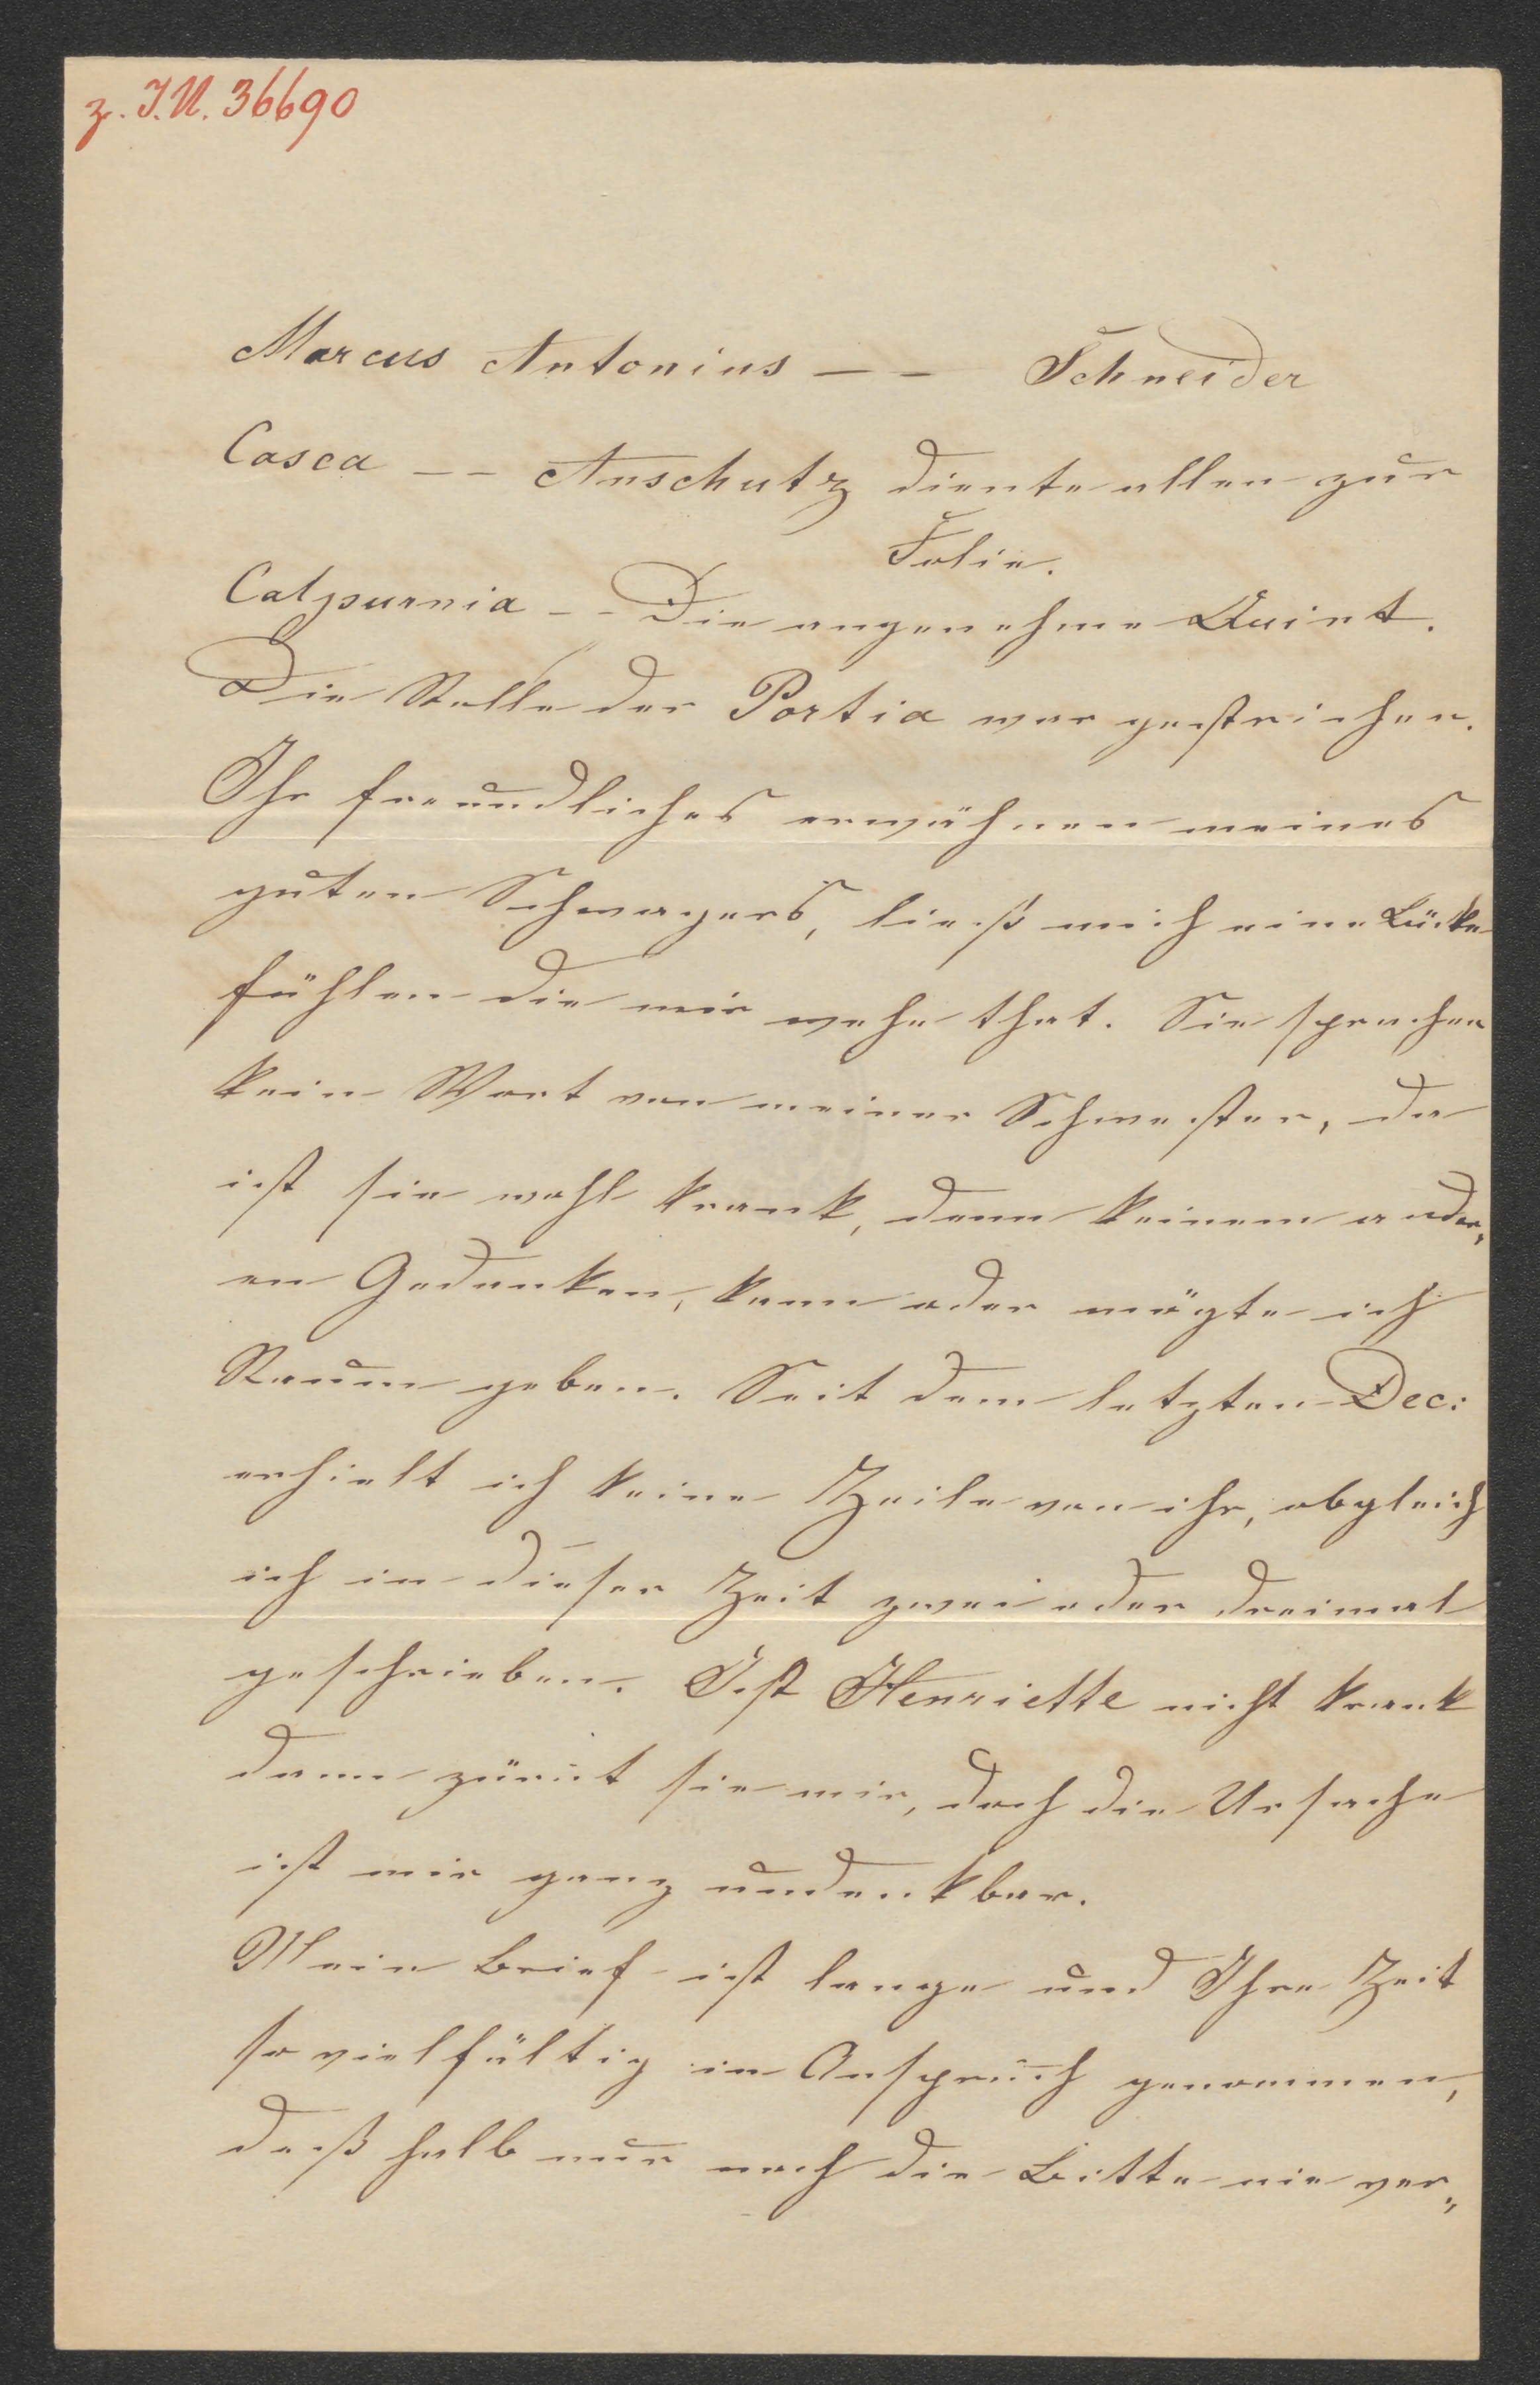 z. I.N. 36690
Marcus Antonius — — Schneider
Casca — — Anschutz diente allen zur
Folie.
Calpurnia — — Die angenehme Quint.
Die Rolle der Portia war gestrichen.
Ihr freundliches erwähnen meines
guten Schwagers, ließ mich eine Lücke
fühlen die mir wehe that. Sie sprachen
kein Wort von meiner Schwester, da
ist sie wohl krank, denn keinem ander„
en Gedanken, kann oder mögte ich
Raum geben. Seit dem letzten Dec:
erhielt ich keine Zeile von ihr, obgleich
ich in dieser Zeit zwei oder dreimal
geschrieben. Ist Henriette nicht krank
dann zürnt sie mir, doch die Ursache
ist mir ganz undenkbar.
Mein Brief ist lange und Ihre Zeit
so vielfältig in Anspruch genommen,
deßhalb nur noch die Bitte nie ver„